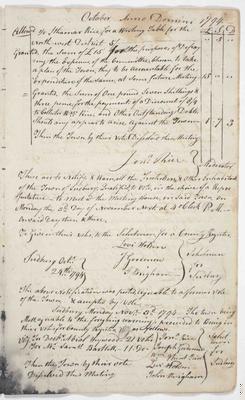 October Anno Domini 1794
£ S D
Allowd to Ithamar Rice for a Writing Table for the
North west District £
Granted, the Sum of £15 for the purpose of Defray
ing the Expence of the Committee, chosen to take
a plan of the Town, they to be Accountable for the
Expenditure of the same, at some future Meeting 15
Granted, the Sum of One pound Seven Shillings &
three pence, for the payment of a Discount of
to Collector Rice and Other Outstanding Debts
that now appear to stand against the Town 1 7 3
Then the Town by their vote Dissolved this Meeting
Moderator
These are to Notify & Warn all the Freeholders, & Other Inhabitants
of the Town of Sudbury, Qualified to vote, in the choice of a Repre
sentative, to meet at the Meeting House, in said Town, on
Monday the 3d day of November next, at 4 o'Clock P.M.
on said Day then & there,
To Give in their votes, to the Selectmen for County Register
Levi Holden
Sudbury Octr
24th 1794
Selectmen
for
Sudbury
The above Notification was posted, agreeable to a former vote
of the Town & accepted by vote
Sudbury Monday Novr 3d 1794. The town being
Met agreeable to the foregoing warning & proceeded to bring in
their votes for County Register, as follows
Viz For Doctr Abiel Heywood 21 votes
Then the Town by their vote
Dissolved this Meeting
Select
men
for
Sudbury